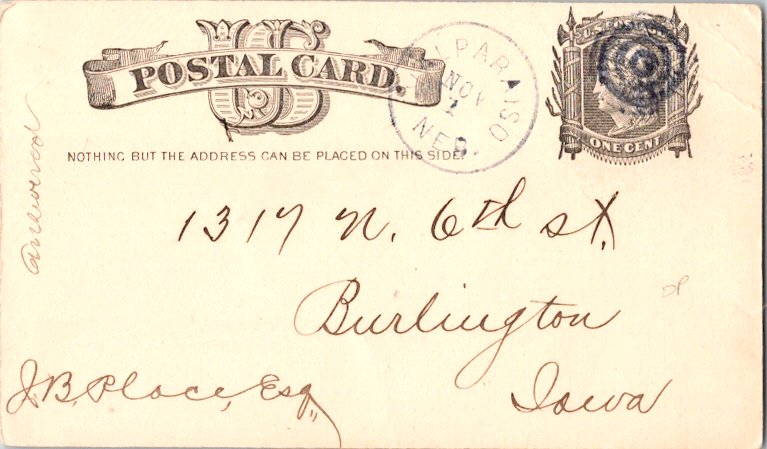 US
POSTAL CARD.
NOTHING BUT THE ADDRESS CAN BE PLACED ON THIS SIDE.
VALPARAISO
NOV
1
NEB.
U.S. POSTAGE
ONE CENT
answered
1317 N. 6th St.
Burlington
Iowa
J.B. Place, Esq.,